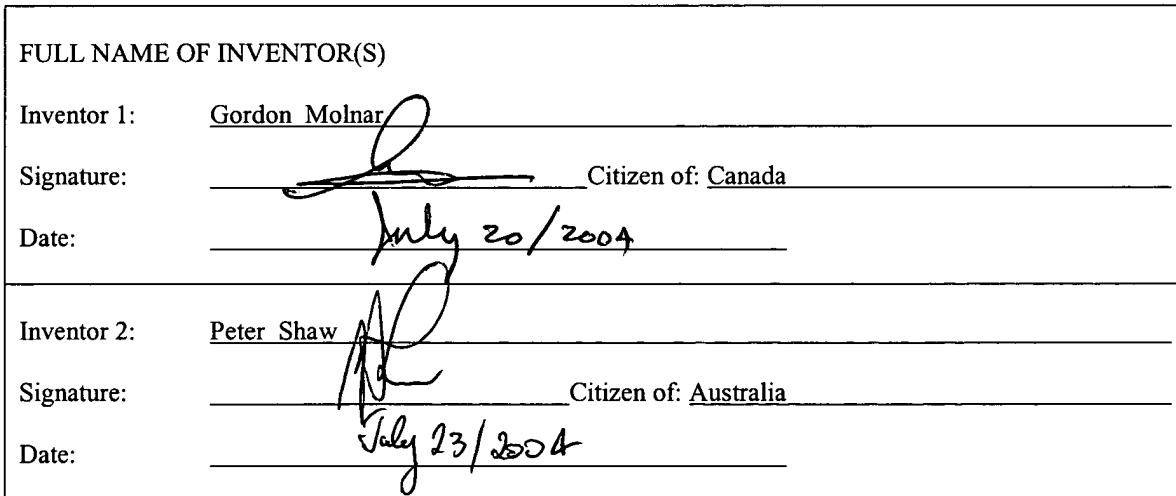 FULL NAME OF INVENTOR(S)
Inventor 1: Gordon Molnar
Signature: Citizen of: Canada
Date: July 20/2004
Inventor 2: Peter Shaw
Signature: Citizen of: Australia
Date: July 23/2004